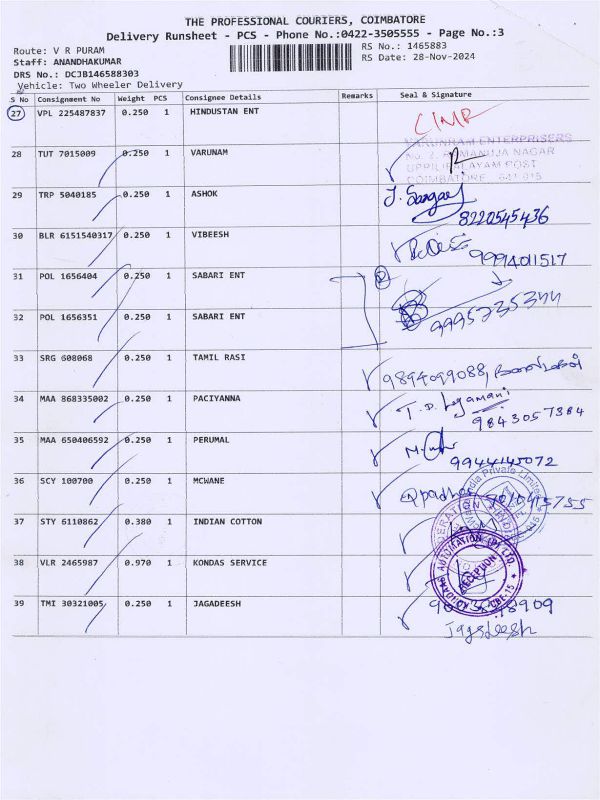 THE PROFESSIONAL COURIERS, COIMBATORE
Delivery Runsheet - PCS - Phone No.:0422-3505555 - Page No.:3
Route: V R PURAM
RS No.: 1465883
Staff: ANANDHAKUMAR
RS Date: 28-Nov-2024
DRS No.: DCJB146588303
Vehicle: Two Wheeler Delivery
S No Consignment No Weight PCS Consignee Details Remarks Seal & Signature
27 VPL 225487837 0.250 1 HINDUSTAN ENT
28 TUT 7015009 0.250 1 VARUNAM
ENTERPRISERS
NAGAR
UPPILIPALAYAM POST
COIMBATORE 641 015
29 TRP 5040185 0.250 1 ASHOK
8220545436
30 BLR 6151540317 0.250 1 VIBEESH
9994011517
31 POL 1656404 0.250 1 SABARI ENT
32 POL 1656351 0.250 1 SABARI ENT
9995735344
33 SRG 608068 0.250 1 TAMIL RASI
9894099088,
34 MAA 868335002 0.250 1 PACIYANNA
9843057384
35 MAA 650406592 0.250 1 PERUMAL
9944145072
36 SCY 100700 0.250 1 MCWANE
India Private Limited
37 STY 6110862 0.380 1 INDIAN COTTON
38 VLR 2465987 0.970 1 KONDAS SERVICE
KONDAAS AUTOMATION (P) LTD.
RECEPTION
CBE-15
39 TMI 30321005 0.250 1 JAGADEESH
Jagadeesh